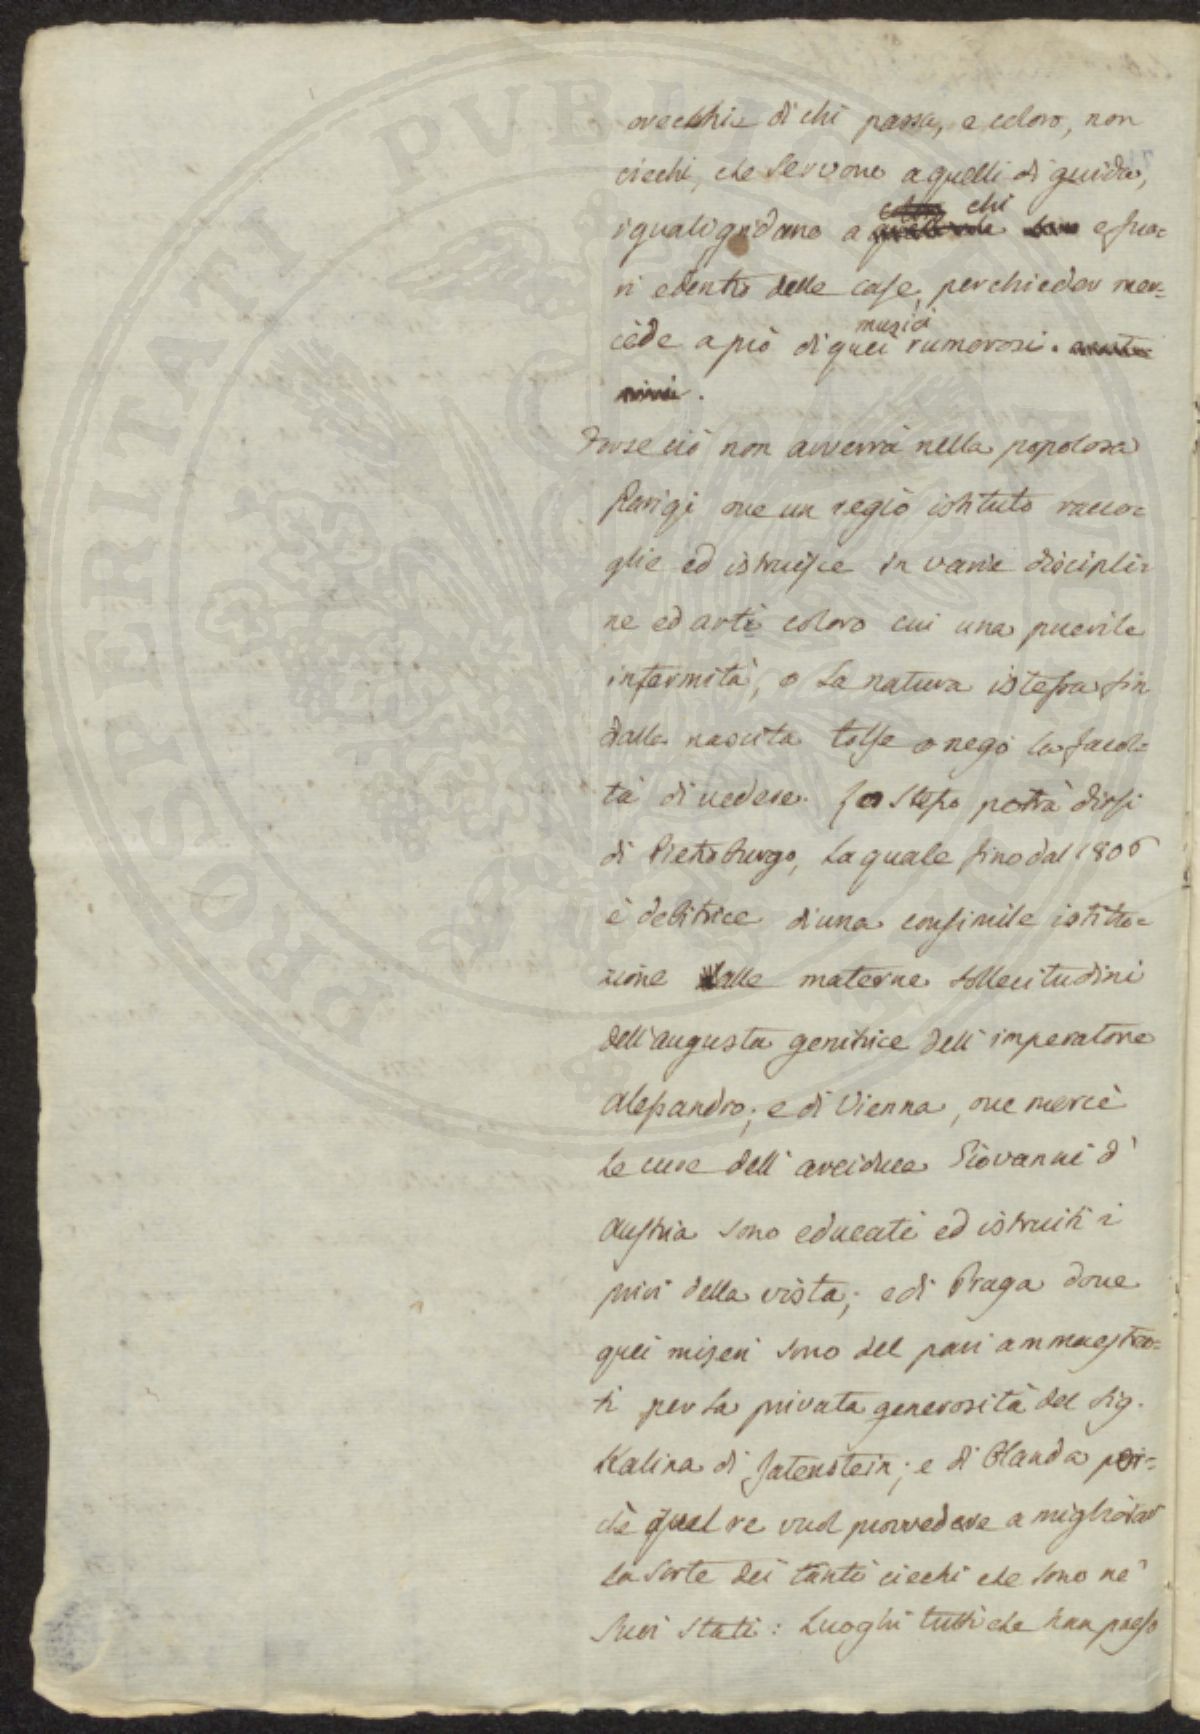 orecchie di chi passa, e coloro, non
ciechi, che servono a quelli di guida,
i quali gridano a chi e fuo=
ri e dentro delle case, per chieder mer=
cede a prò di quei musici rumorosi.
Forse ciò non avverrà nella popolosa
Parigi ove un regio istituto racco=
glie ed istruisce in varie discipli=
ne ed arti coloro cui una puerile
infermità, o la natura istessa fin
dalla nascita tolse o negò la facol=
tà di vedere. Lo stesso potrà dirsi
di Pietroburgo, la quale fino dal 1806
è debitrice d'una consimile istitu=
zione alle materne sollecitudini
dell'augusta genitrice dell'imperatore
Alessandro; e di Vienna, ove mercè
le cure dell'arciduca Giovanni d'
Austria sono educati ed istruiti i
privi della vista; e di Praga dove
quei miseri sono del pari ammaestra=
ti per la privata generosità del Sig.
Kalina di Jatenstein; e di Olanda poi=
chè quel re vuol provvedere a migliorar
la sorte dei tanti ciechi che sono ne'
suoi stati: luoghi tutti che han preso
PROSPERITATI PUBLICAE AUGENDAE